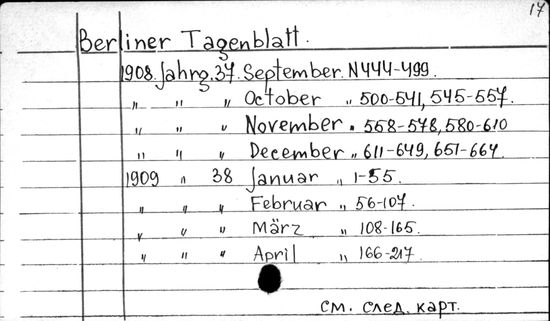 17
Berliner Tagenblatt.
1908. Jahrg. 37. September. N444-499.
" " " October " 500-541, 545-557.
" " " November " 558-578, 580-610
" " " December " 611-649, 651-664.
1909 " 38 Januar " 1-55.
" " " Februar " 56-107.
" " " März " 108-165.
" " " April " 166-217.
см. след. карт.